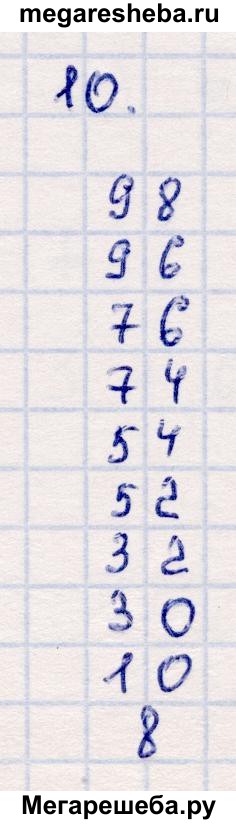 megaresheba.ru
10.
98
96
76
74
54
52
32
30
10
8
Мегарешеба.ру